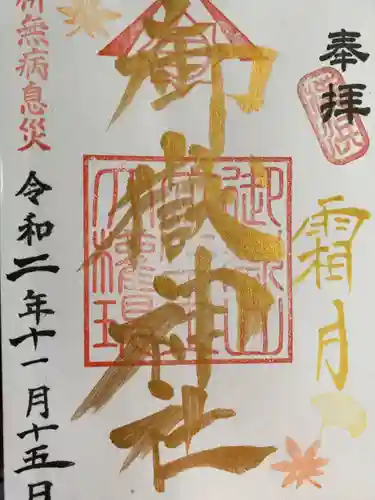 奉拝
霜月
御嶽神社
無病息災
令和二年十一月十五日